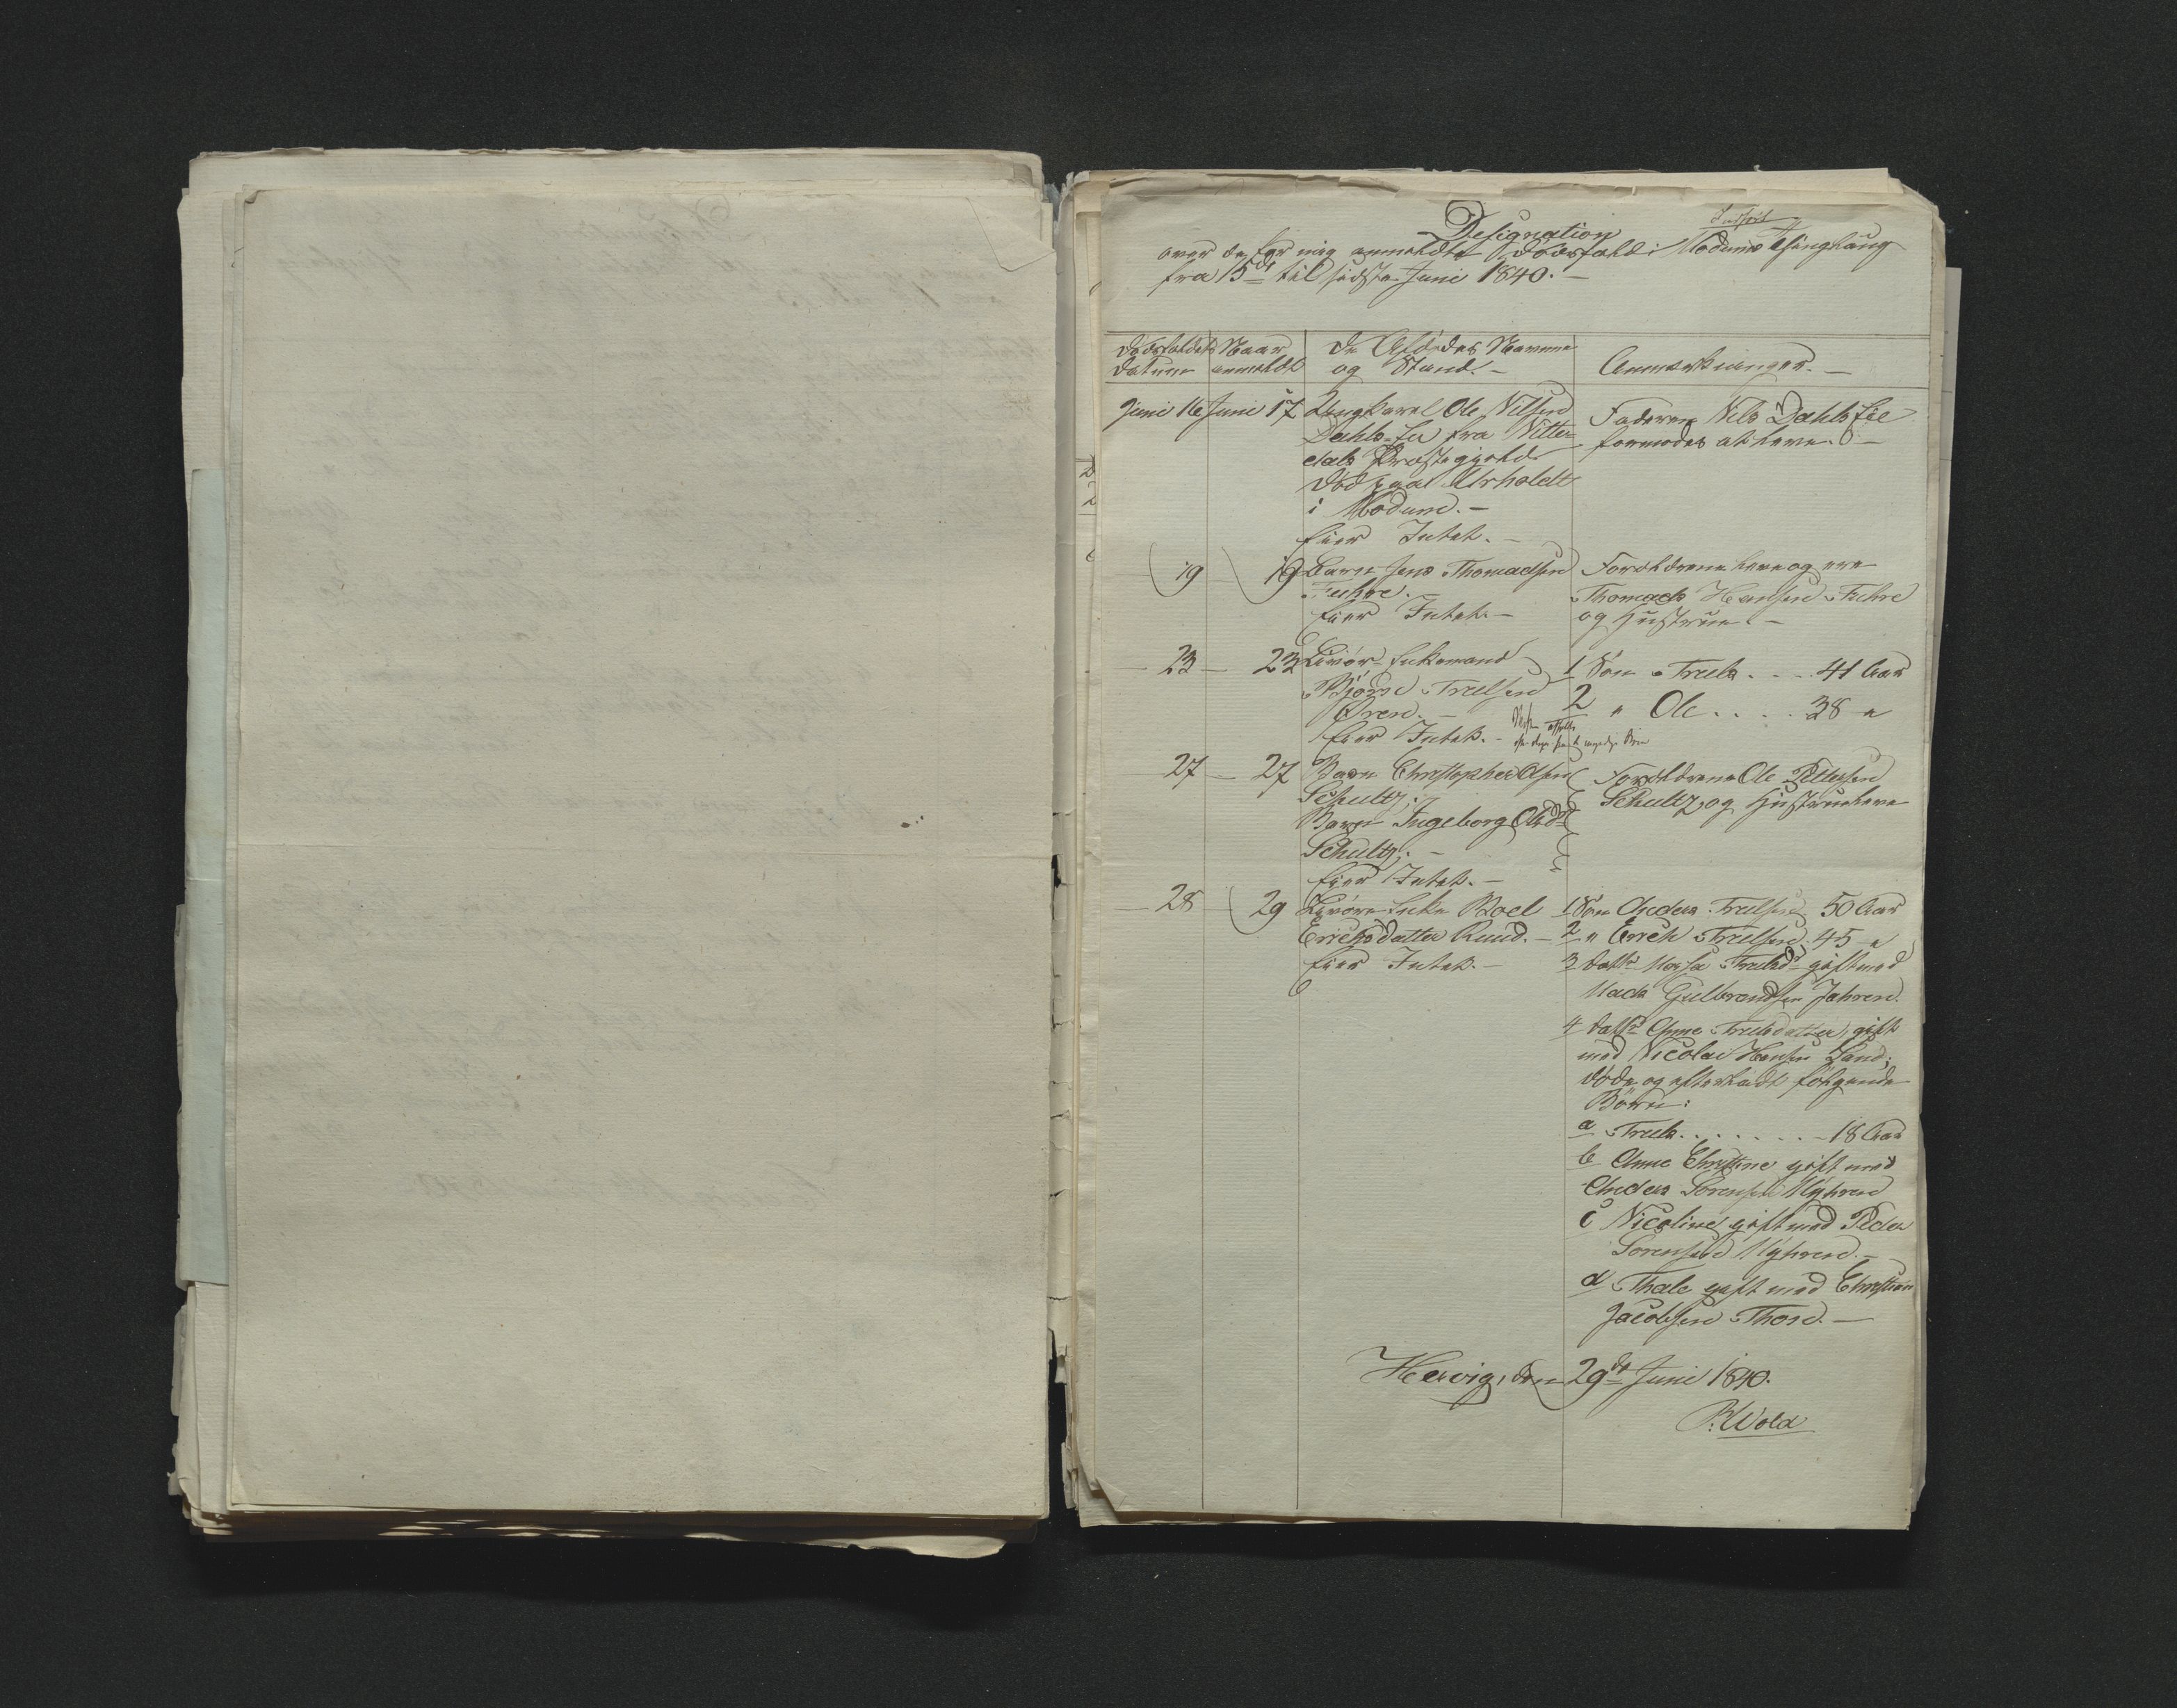 Designation
over de for mig anmeldte Dödsfald i Modums Thinglaug
fra 15de til sidste Juni 1840. —
Dödsfaldets Datum
Naar anmeldt
De Afdödes Navne og Stand. —
Anmærkninger. —
Juni 16 Juni 17 Ungkarl Ole Nilsen
Dahls-Eie fra Nitte-
dals Præstegjeld
Död paa
i Modum. —
Eier Intet. —
Faderen Nils Dahls Eie
formodes at leve. —
19 19 Barn Jens Thomassen
Fuhre.
Eier Intet. —
Forældrene leve og ere
Thomas Hansen Fuhre
og Hustrue. —
— 23 — 23 Livör-Enkemand
Björn Truelsen
Øren. —
Eier Intet. —
1 Sön Truls . . . . 41 Aar
2 " Ole . . . . 38 —"
— 27 — 27 Barn Christopher Olsen
Schultz;
Barn Ingeborg Olsdr
Schultz; —
Eier Intet. —
Forældrene Ole Pettersen
Schultz, og Hustrue leve
— 28 29 Livöre Enke Boel
Erichsdatter Ruud. —
Eier Intet. —
1 Sön Anders Trulsen 50 Aar
2 " Erich Trulsen 45 —"
3 Dattr Truelsdr gift med
Mads Gulbrandsen Jahren.
4 Dattr Anne Truelsdatter, gift
med Nicolai Hansen
döde og efterladt fölgende
Börn:
a Truls . . . . . . . — 18 Aar
b Anne Christine gift med
Anders Sörensen Myhren
c Nicoline gift med Peder
Sorensen Myhren. —
d Thale gift med Christian
Jacobsen Thon. —
Hervig, den 29de Juni 1840.
P. Wold